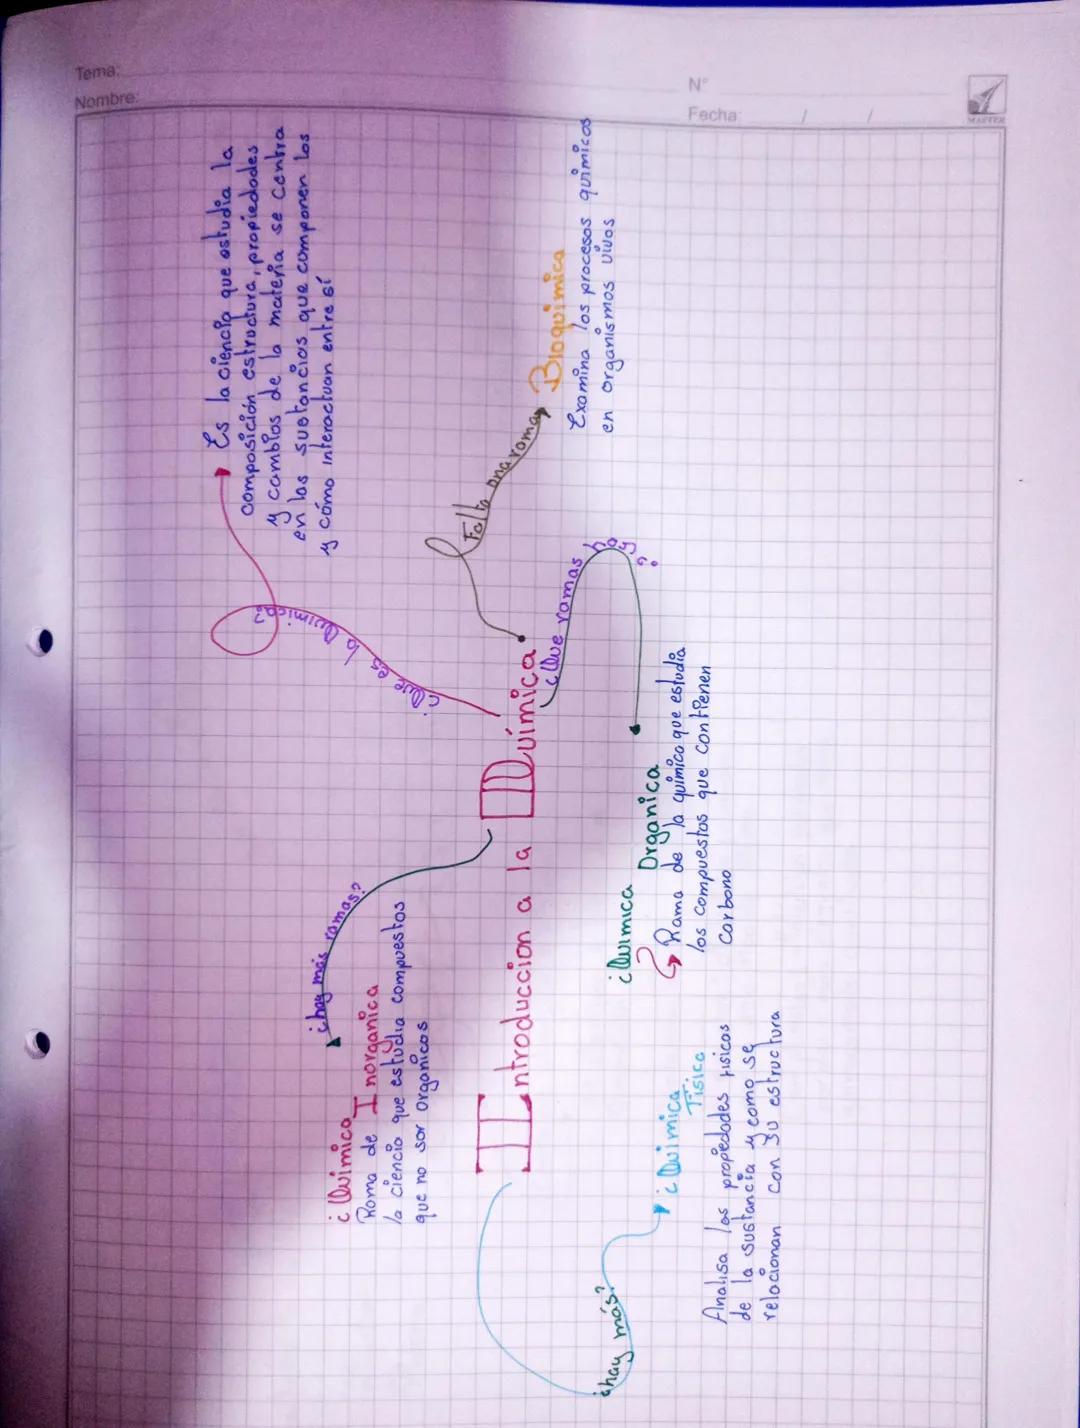 Tema:
Nombre:
N°
Fecha: / /
MASTER
Introduccion a la Química
¿Que es la Quimica?
Es la ciencia que estudia la
composición estructura, propiedades
y cambios de la materia se centra
en las sustancias que componen los
y cómo interactuan entre sí
Falta una rama
Bioquimica
Examina los procesos quimicos
en organismos vivos
¿Que ramas hay?
¿Quimica Organica
Rama de la quimica que estudia
los compuestos que contienen
Carbono
¿hay más ramas?
¿Quimica Inorganica
Rama de
la ciencia que estudia compuestos
que no sor organicos
¿hay más?
¿Quimica
Fisica
Analisa las propedades fisicas
de la sustancia y como se
relacionan con su estructura